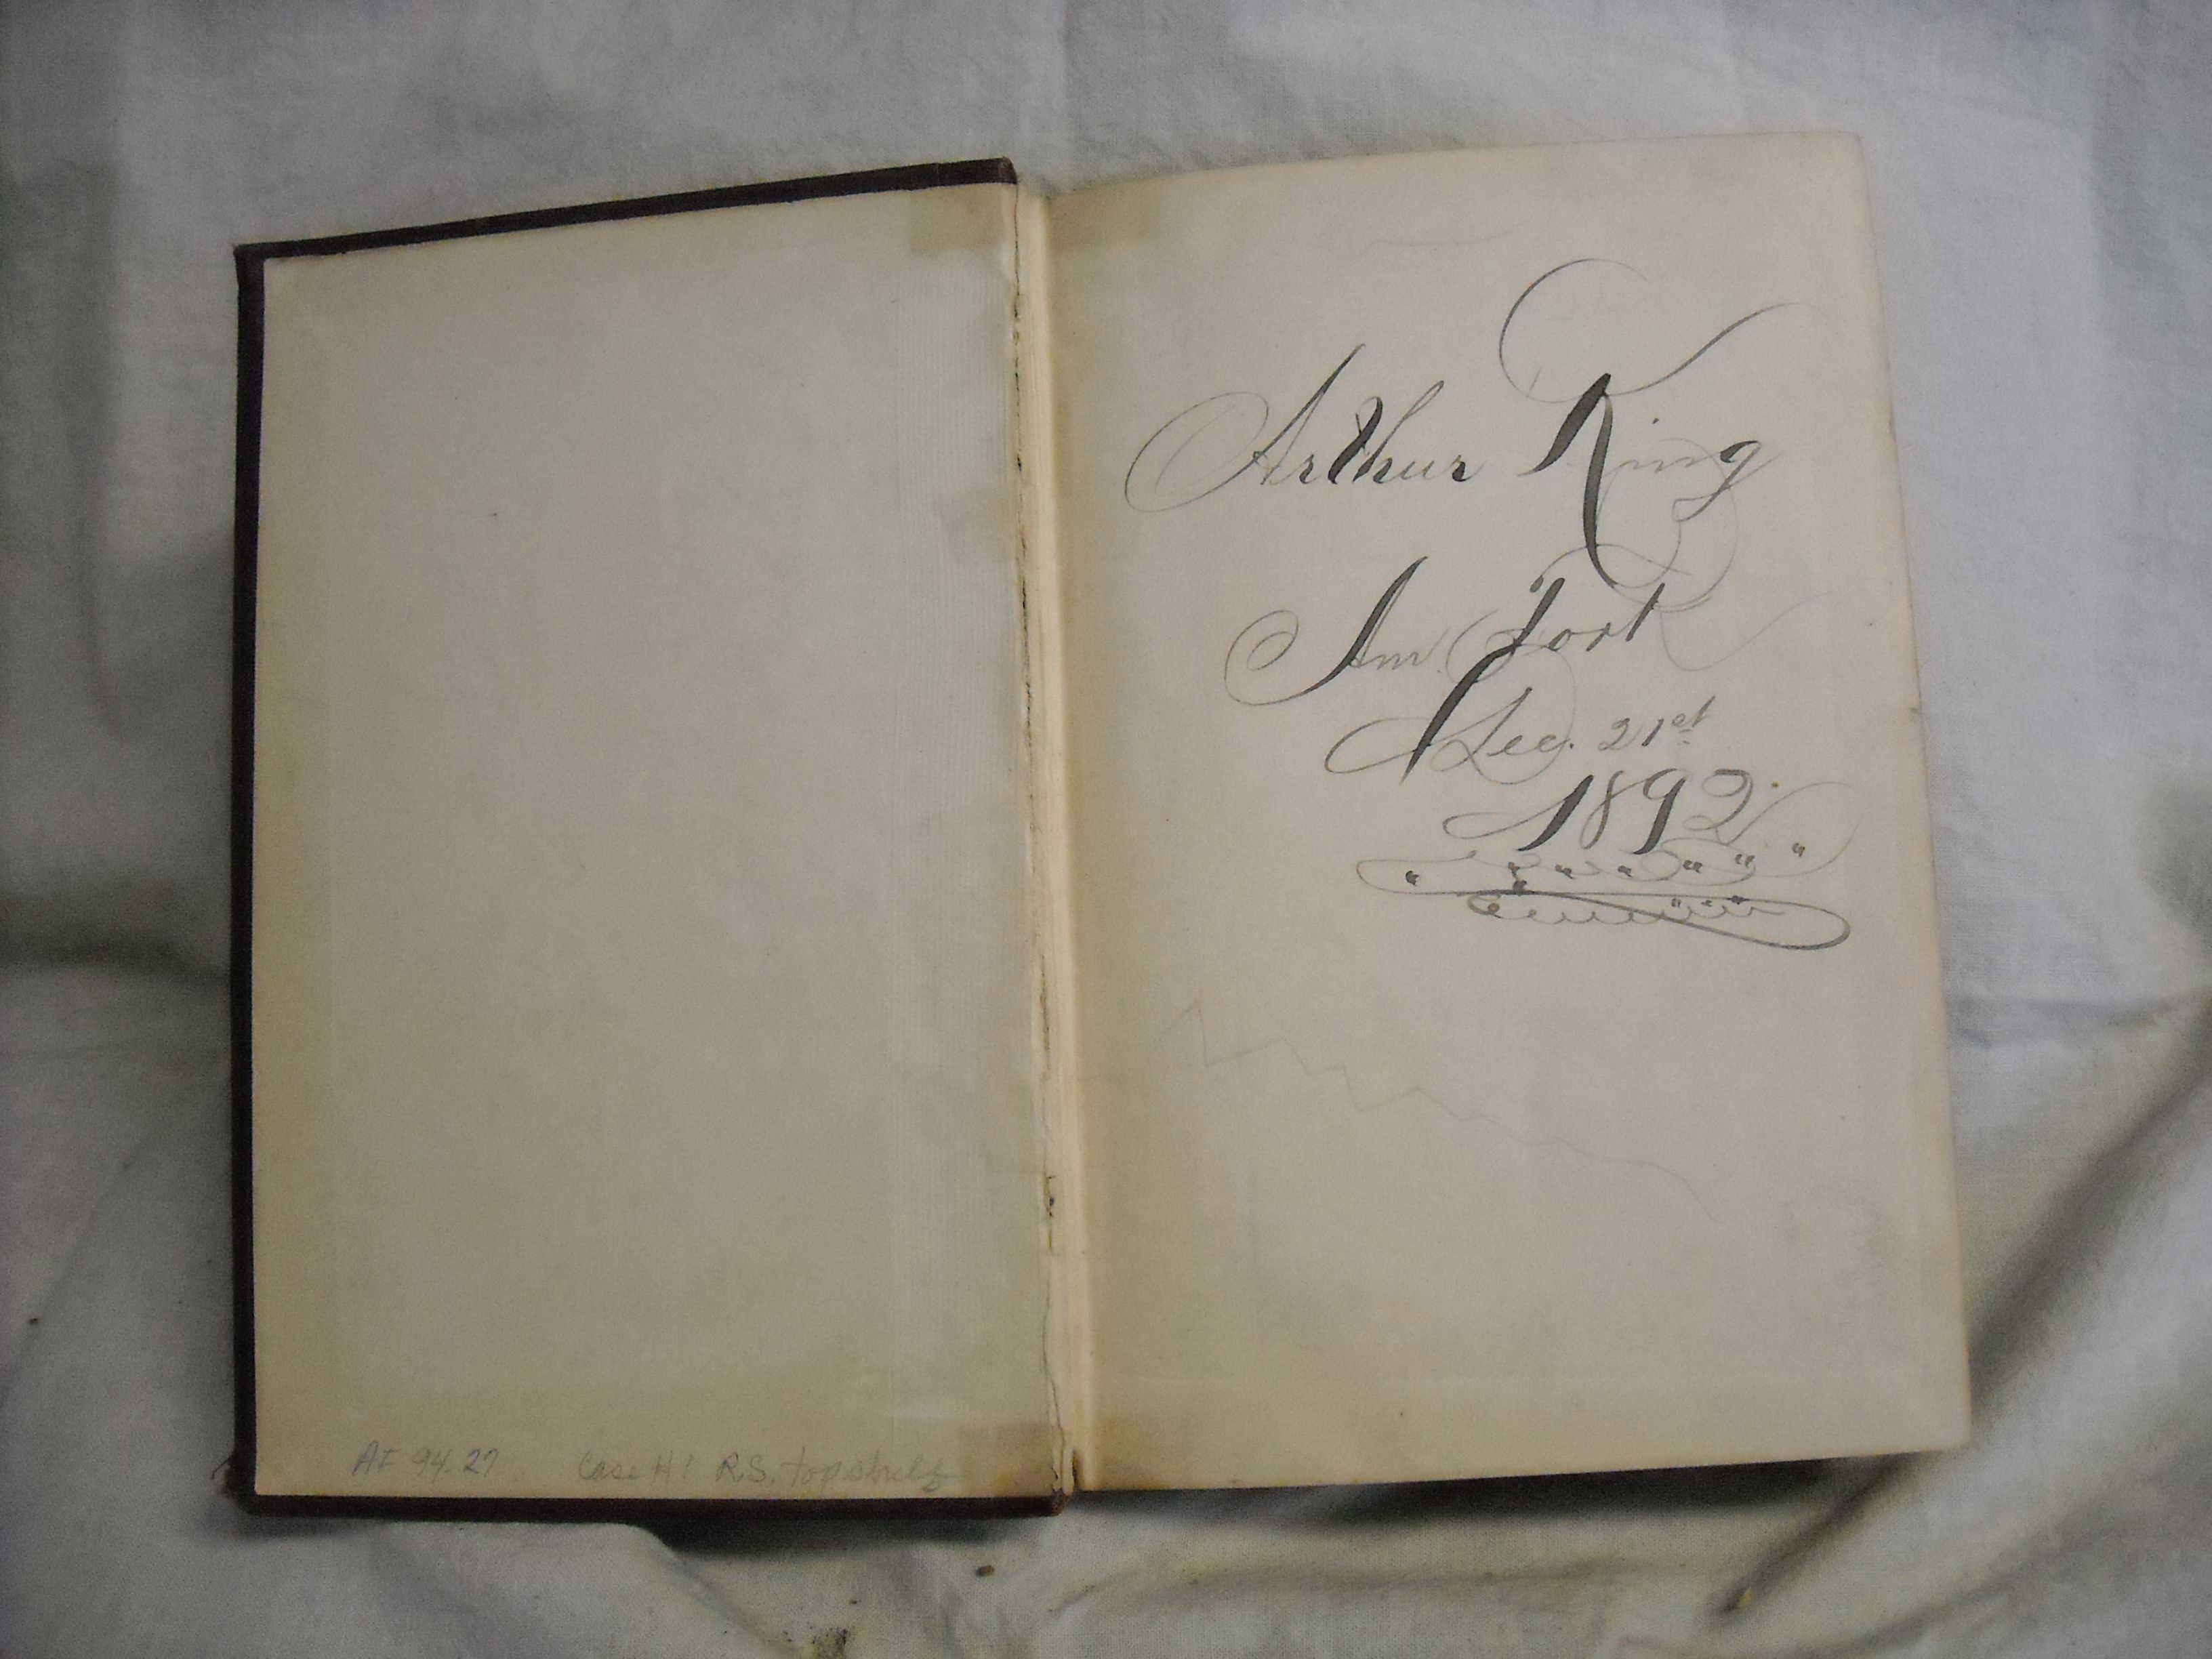 AF 94.27 Case H! R.S. top shelf
Arthur King
Am Fort
Dec. 21st
1892.